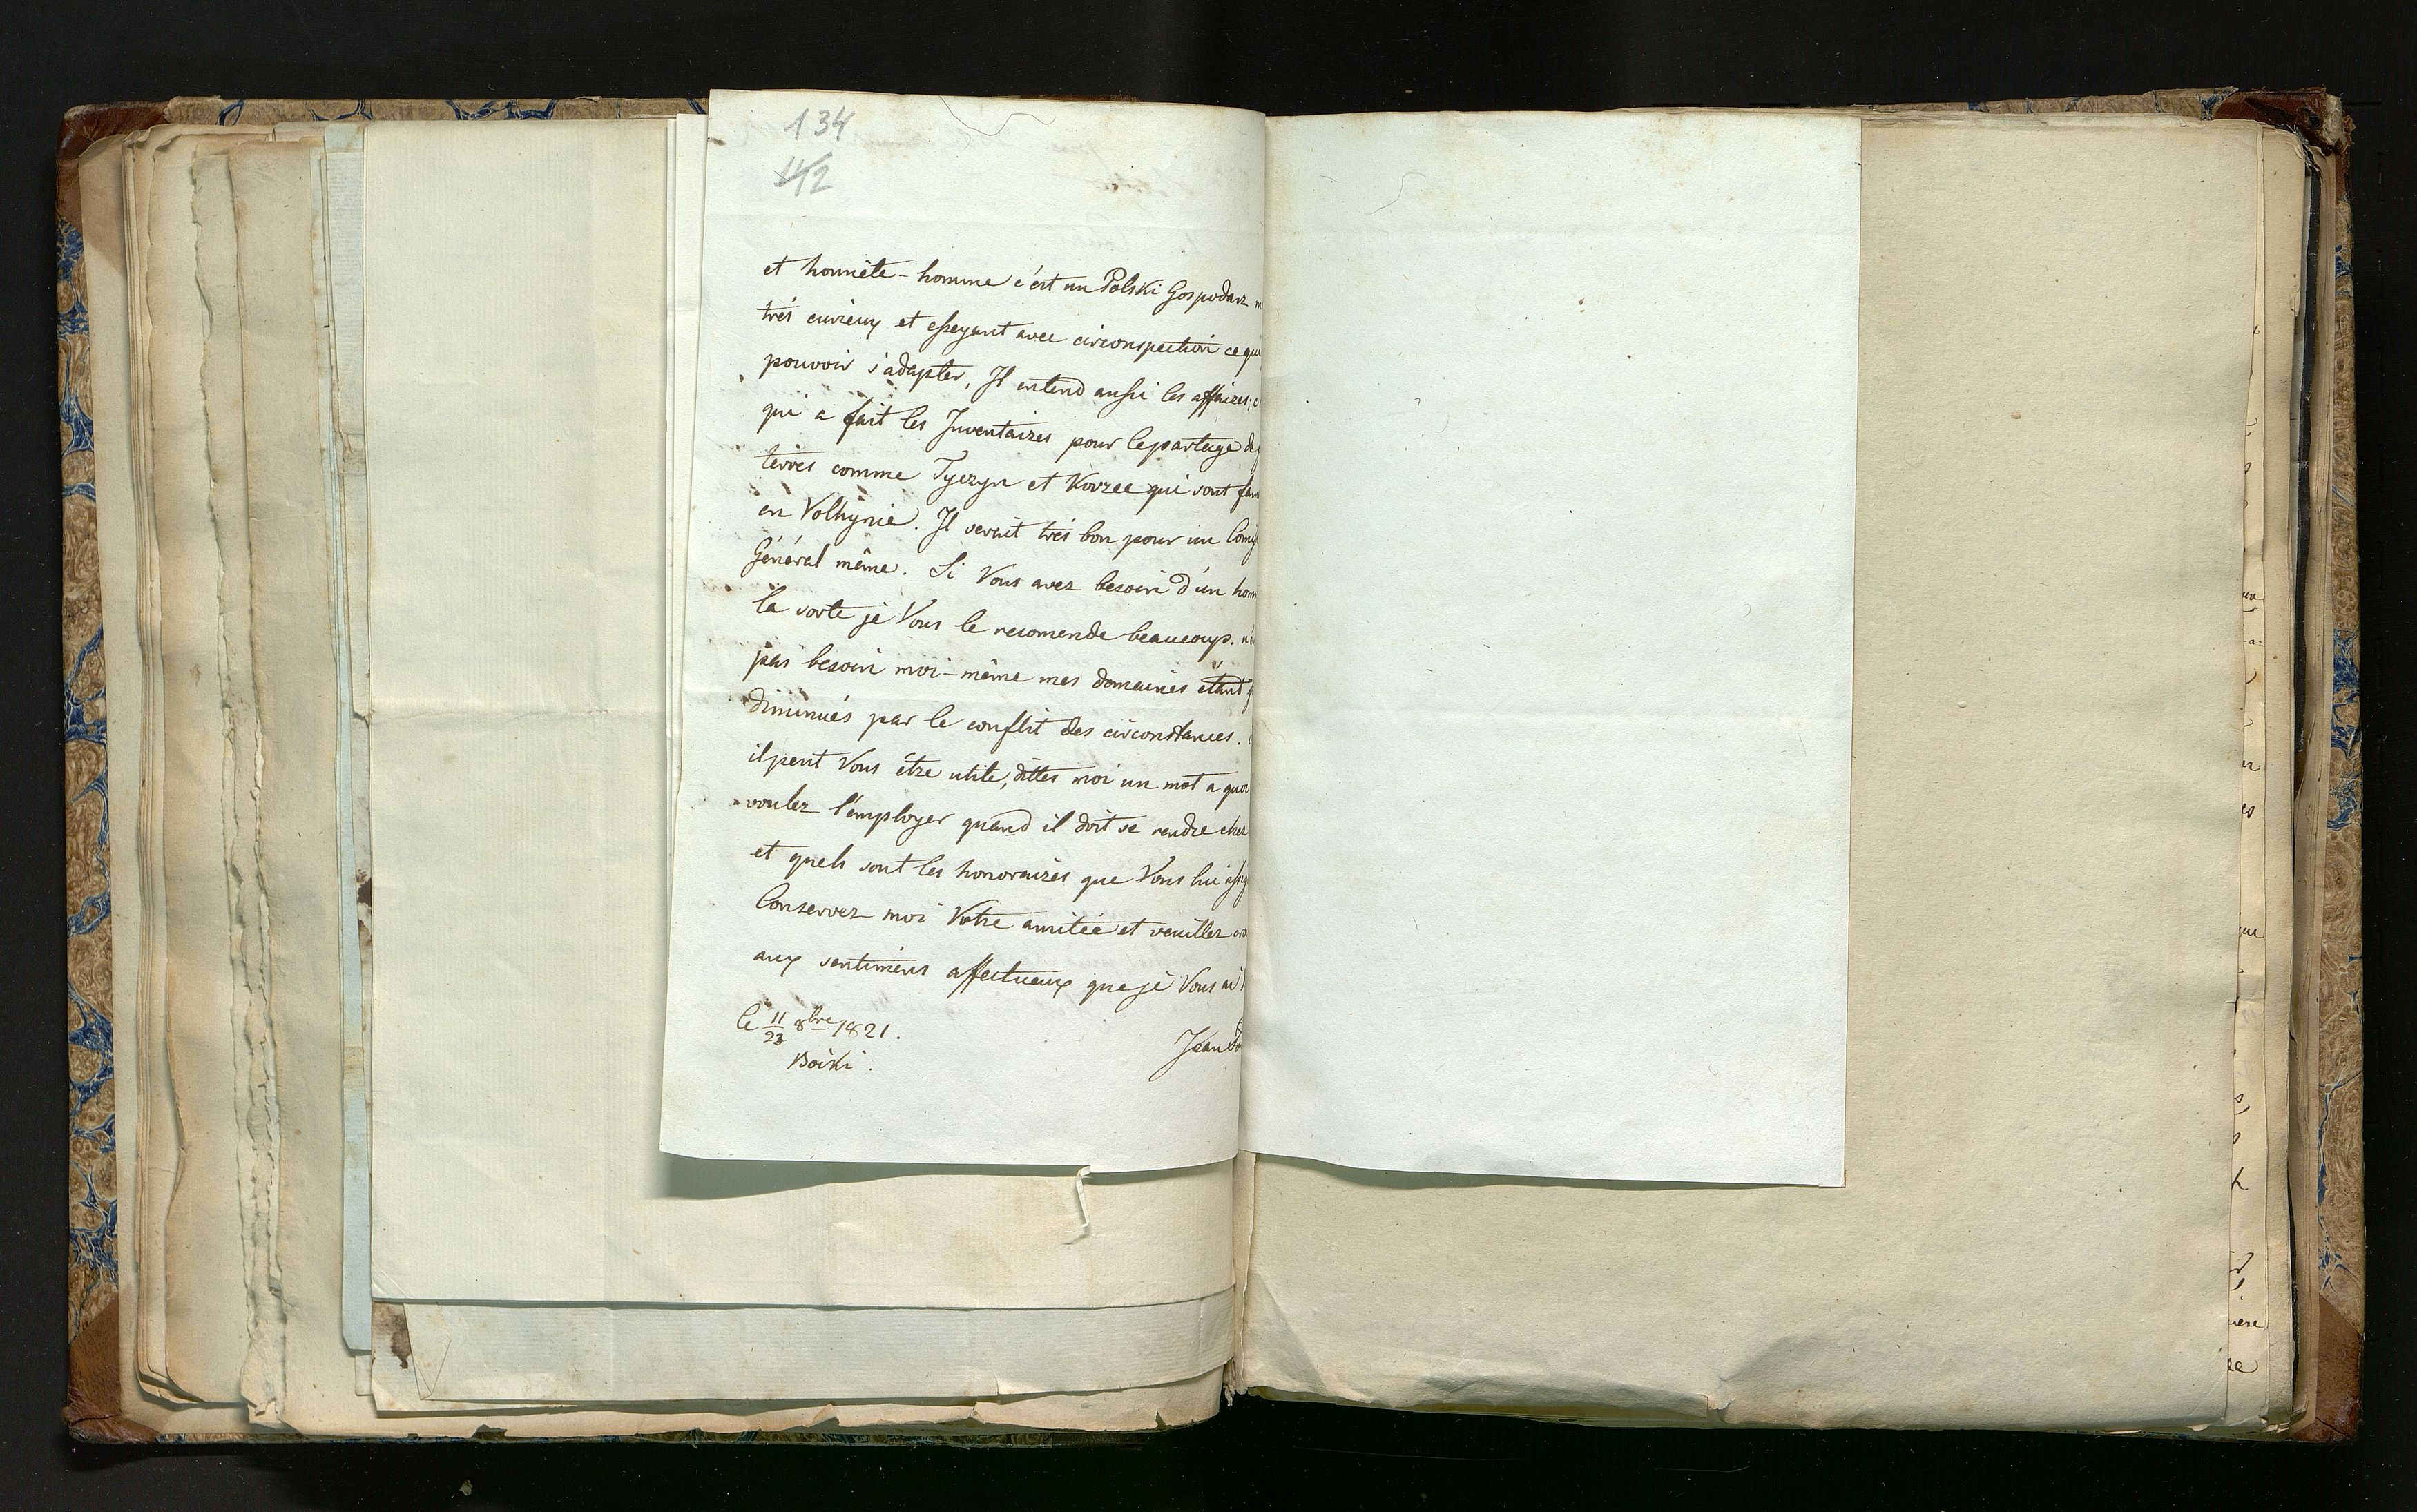 134
112
et honnète-homme c'est un Polski Gospodarz
trés curieux et esseyant avec circonspection ce qui
pouvoir s'adapter, Il entend aussi les affaires;
qui a fait les Inventaires pour le partage de
terres comme Tyczyn et Korzec qui sont
en Volhynie. Il serait trés bon pour un
Général même. Si Vous avez besoin d'un
la sorte je Vous le recomende beaucoup.
pas besoin moi-même mes domaines étant
diminués par le conflit des circonstances.
il peut Vous être utile, dittes moi un mot a quoi
voulez l'employer quand il doit se rendre chez
et quels sont les honoraires que Vous lui
Conservez moi Votre amitée et veuillez
aux sentimens affectueux que je Vous ai
le 11/23 8bre 1821.
Boiki.
Jean